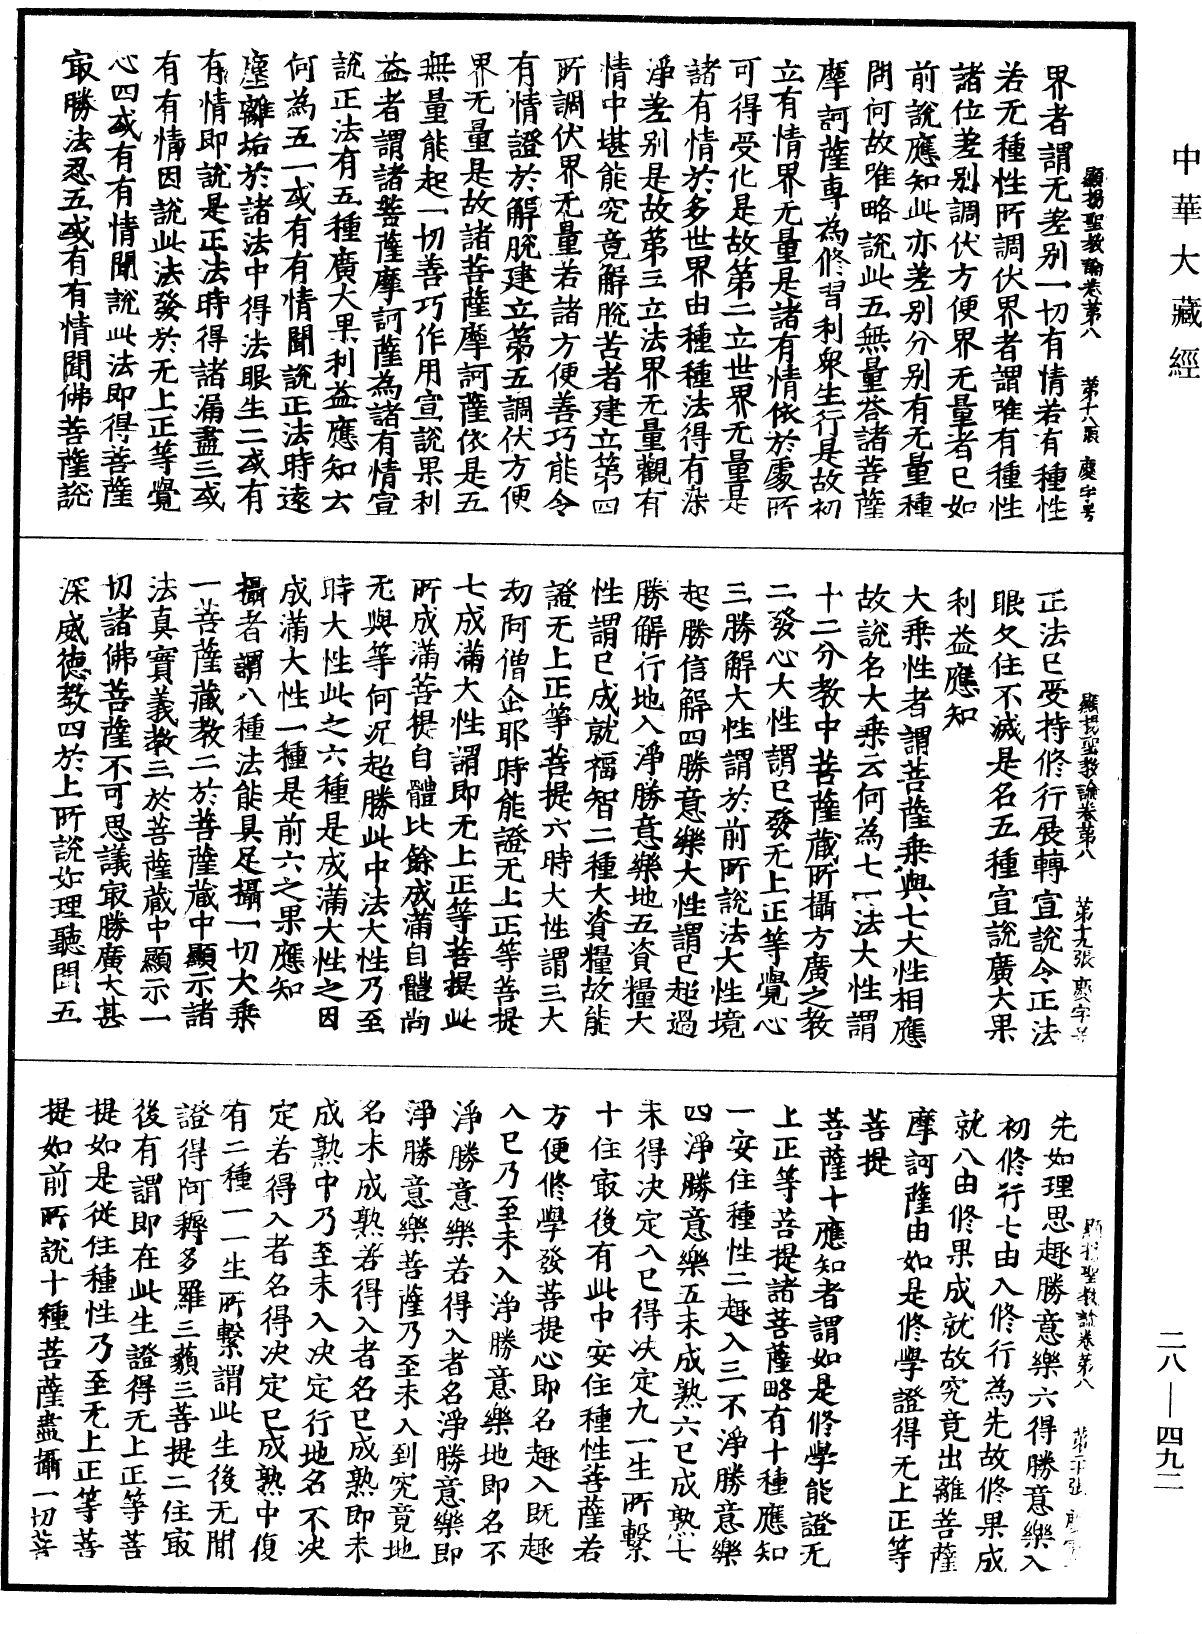 中華大藏經
顯揚聖教論卷第八　第十八張　慶字号
界者謂无差别一切有情若有種性
若无種性所調伏界者謂唯有種性
諸位差别調伏方便界无量者已如
前說應知此亦差别分别有无量種
問何故唯略說此五無量荅諸菩薩
摩訶薩專為修習利衆生行是故初
立有情界无量是諸有情依於處所
可得受化是故第二立世界无量是
諸有情於多世界由種種法得有染
淨差别是故第三立法界无量觀有
情中堪能究竟解脫苦者建立第四
所調伏界无量若諸方便善巧能令
有情證於解脫建立第五調伏方便
界无量是故諸菩薩摩訶薩依是五
無量能起一切善巧作用宣說果利
益者謂諸菩薩摩訶薩為諸有情宣
說正法有五種廣大果利益應知云
何為五一或有有情聞說正法時遠
塵離垢於諸法中得法眼生二或有
有情即說是正法時得諸漏盡三或
有有情因說此法發於无上正等覺
心四或有有情聞說此法即得菩薩
㝡勝法忍五或有有情聞佛菩薩說
顯揚聖教論卷第八　第十九張　慶字号
正法已受持修行展轉宣說令正法
眼久住不滅是名五種宣說廣大果
利益應知
大乘性者謂菩薩乘與七大性相應
故說名大乘云何為七一法大性謂
十二分教中菩薩藏所攝方廣之教
二發心大性謂已發无上正等覺心
三勝解大性謂於前所說法大性境
起勝信解四勝意樂大性謂已超過
勝解行地入淨勝意樂地五資糧大
性謂已成就福智二種大資糧故能
證无上正等菩提六時大性謂三大
劫阿僧企耶時能證无上正等菩提
七成滿大性謂即无上正等菩提此
所成滿菩提自體比餘成滿自體尚
无與等何況超勝此中法大性乃至
時大性此之六種是成滿大性之因
成滿大性一種是前六之果應知
攝者謂八種法能具足攝一切大乘
一菩薩藏教二於菩薩藏中顯示諸
法真實義教三於菩薩藏中顯示一
切諸佛菩薩不可思議㝡勝廣大甚
深威德教四於上所說如理聽聞五
顯揚聖教論卷第八　第二十張
先如理思趣勝意樂六得勝意樂入
初修行七由入修行為先故修果成
就八由修果成就故究竟出離菩薩
摩訶薩由如是修學證得无上正等
菩提
菩薩十應知者謂如是修學能證无
上正等菩提諸菩薩略有十種應知
一安住種性二趣入三不淨勝意樂
四淨勝意樂五未成熟六已成熟七
未得決定八已得決定九一生所繫
十住㝡後有此中安住種性菩薩若
方便修學發菩提心即名趣入既趣
入已乃至未入淨勝意樂地即名不
淨勝意樂若得入者名淨勝意樂即
淨勝意樂菩薩乃至未入到究竟地
名未成熟若得入者名已成熟即未
成熟中乃至未入決定行地名不決
定若得入者名得決定已成熟中復
有二種一一生所繫謂此生後无間
證得阿耨多羅三藐三菩提二住㝡
後有謂即在此生證得无上正等菩
提如是從住種性乃至无上正等菩
提如前所說十種菩薩盡攝一切菩
二八—四九二